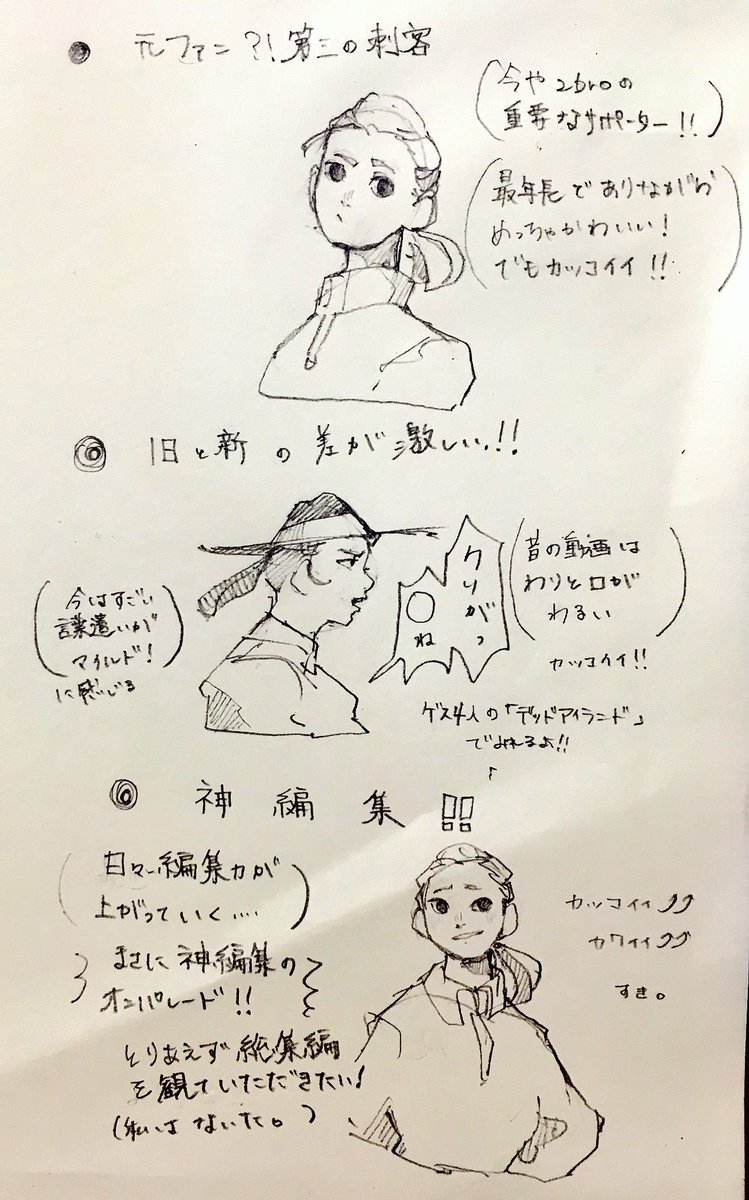 元ファン?!第三の刺客
今や2broの
重要なサポーター!!
最年長でありながら
めっちゃかわいい!
でもカッコイイ!!
旧と新の差が激しい!!
クリがっ
○ね
昔の動画は
わりと口が
わるい
カッコイイ!!
今はすごい
言葉遣いが
マイルド!
に感じる
ゲス4人の「デッドアイランド」
でみれるよ!!
神編集!!
日々編集力が
上がっていく....
まさに神編集の
オンパレード!!
とりあえず総集編
を観ていただきたい!
(私はないた。)
カッコイイ
カワイイ
すき。